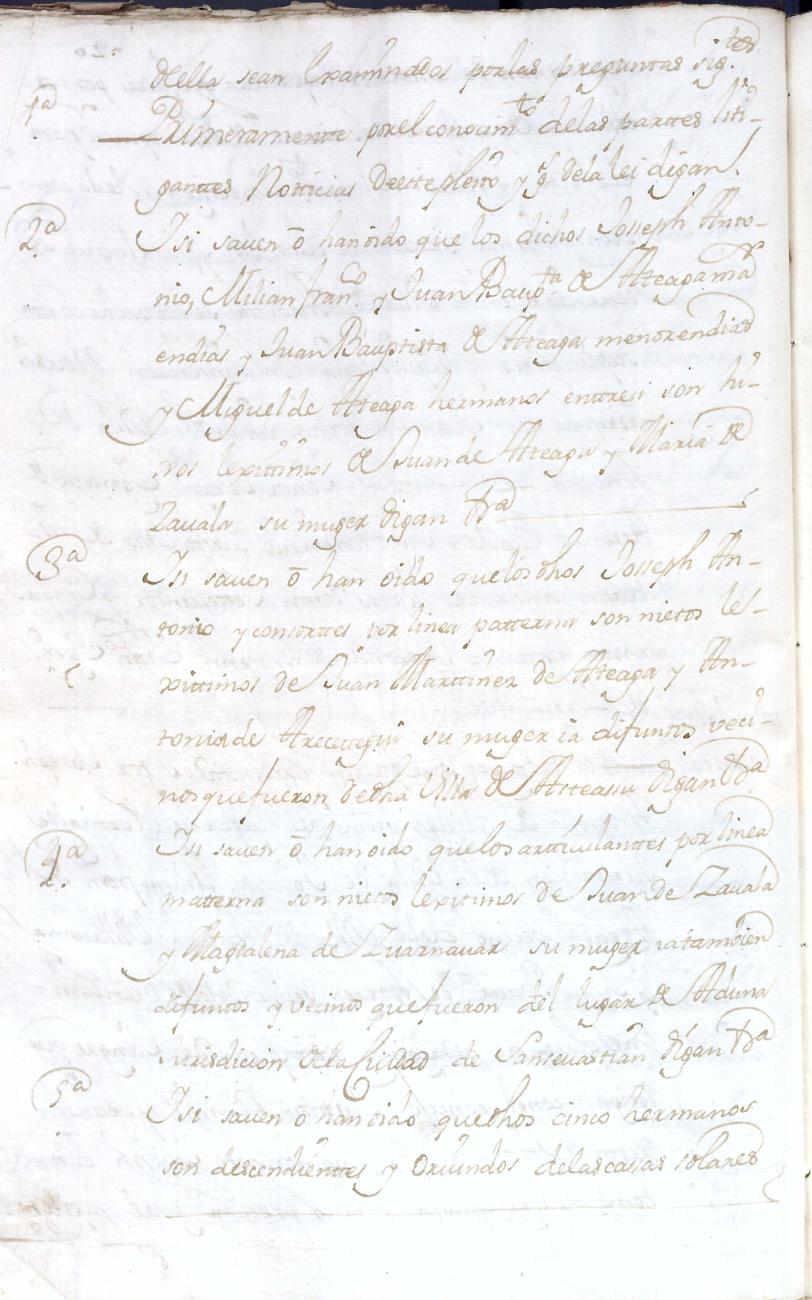 della sean Examinados por las preguntas sig.tes
1a Primeramentte por el conocim.to de las parttes liti-
ganttes Notticias de este pleito y g.s de la lei digan
2a I si saven ō han oido que los dichos Joseph Anto-
nio, Milian fran.co y Juan Baup.ta de Atteaga ma.r
en dias y Juan Bauptista de Atteaga menor en dias
y Miguel de Atteaga hermanos enttre si son hi-
xos lexittimos de Juan de Atteaga y Maria de
Zavala su muger digan
3a I si saven ō han oido que los dhos Joseph An-
tonio y consorttes por linea patterna son nietos le-
xittimos de Juan Marttinez de Atteaga y An-
tonia de Arecettegui su muger ia difuntos veci-
nos que fueron de dha Villa de Astteasu digan
4a I si saven ō han oido que los artticulanttes por linea
matterna son nietos lexitimos de Juan de Zavala
y Magdalena de Zuaznavar su muger ia tambien
difuntos y vecinos que fueron del lugar de Aduna
Jurisdicion de la Ciudad de San sevastian digan
5a I si saven ō han oido que dhos cinco hermanos
son descendienttes y Oriundos de las casas solares